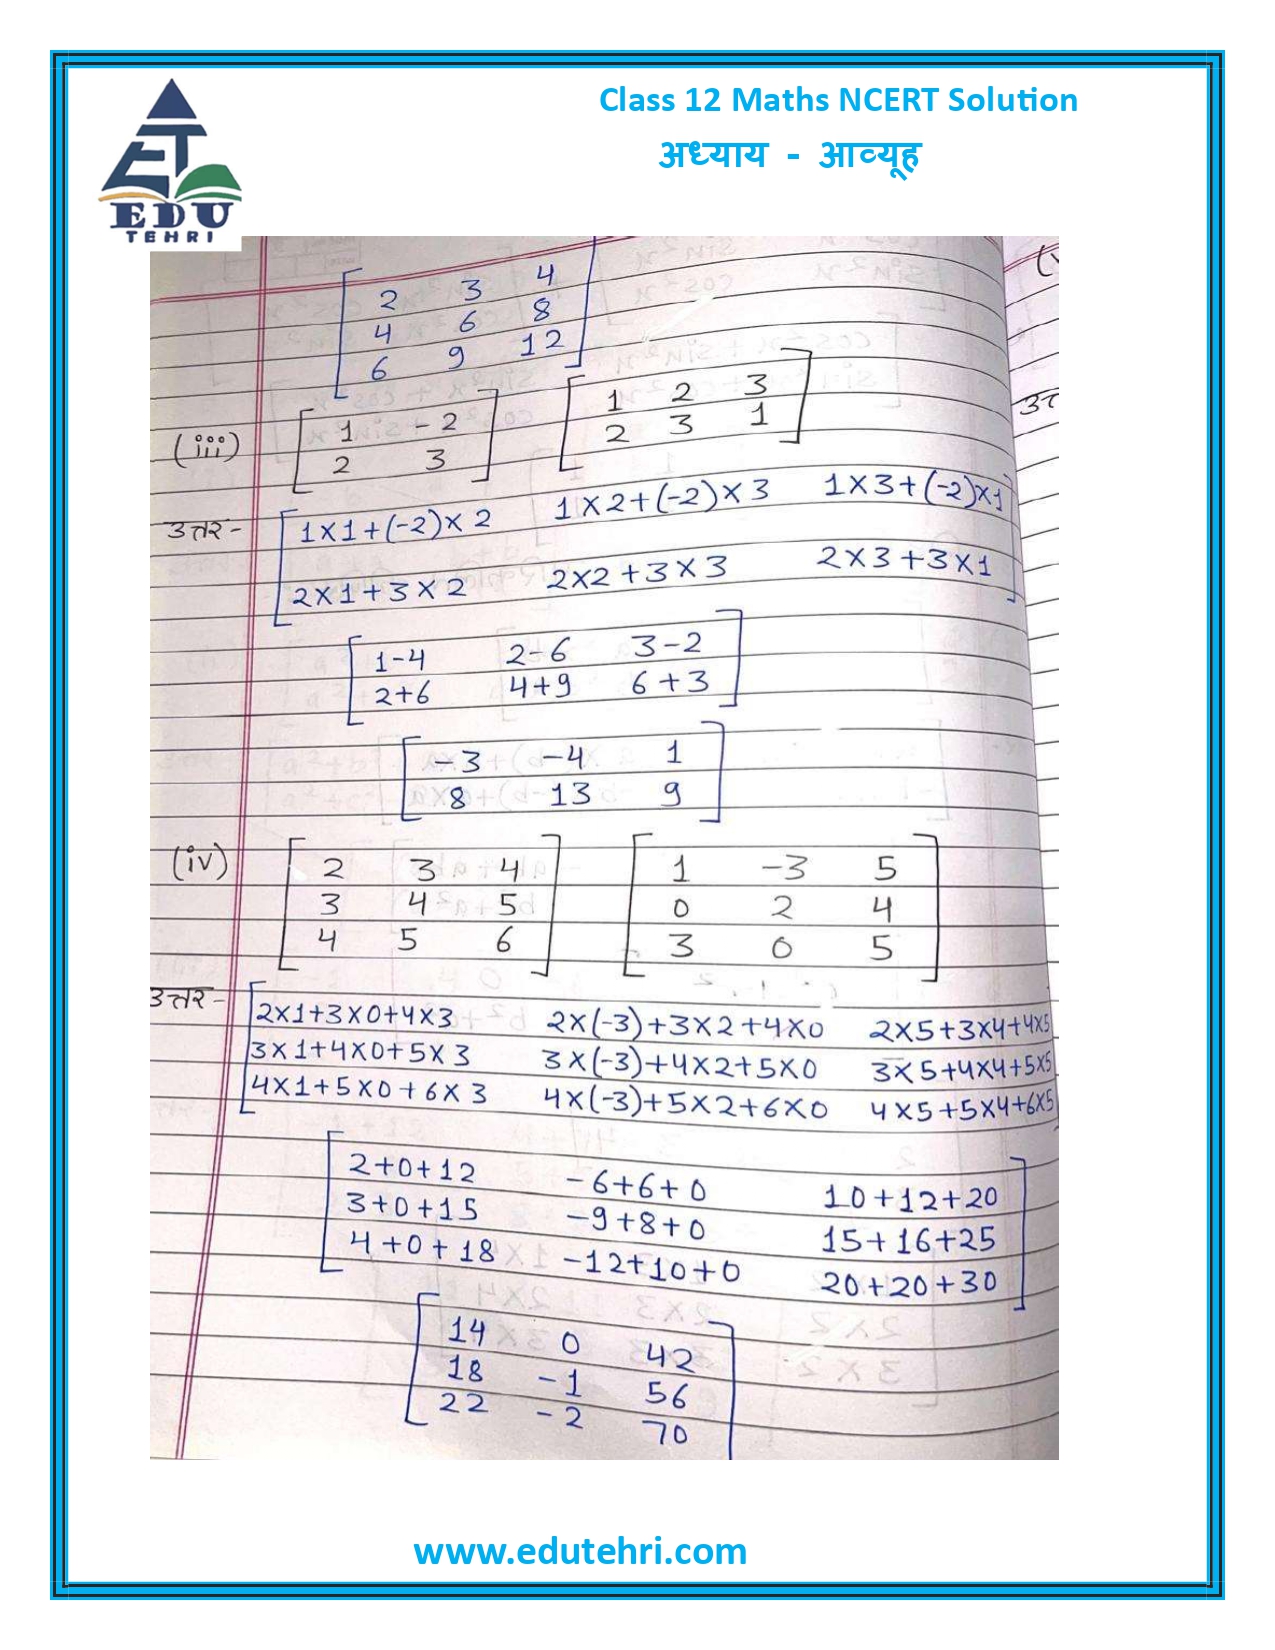 EDU
TEHRI
Class 12 Maths NCERT Solution
अध्याय - आव्यूह
2 3 4
4 6 8
6 9 12
(iii) [1 -2] [1 2 3]
[2 3] [2 3 1]
उत्तर- 1×1+(-2)×2 1×2+(-2)×3 1×3+(-2)×1
2×1+3×2 2×2+3×3 2×3+3×1
1-4 2-6 3-2
2+6 4+9 6+3
-3 -4 1
8 13 9
(iv) [2 3 4] [1 -3 5]
[3 4 5] [0 2 4]
[4 5 6] [3 0 5]
उत्तर- 2×1+3×0+4×3 2×(-3)+3×2+4×0 2×5+3×4+4×5
3×1+4×0+5×3 3×(-3)+4×2+5×0 3×5+4×4+5×5
4×1+5×0+6×3 4×(-3)+5×2+6×0 4×5+5×4+6×5
2+0+12 -6+6+0 10+12+20
3+0+15 -9+8+0 15+16+25
4+0+18 -12+10+0 20+20+30
14 0 42
18 -1 56
22 -2 70
www.edutehri.com